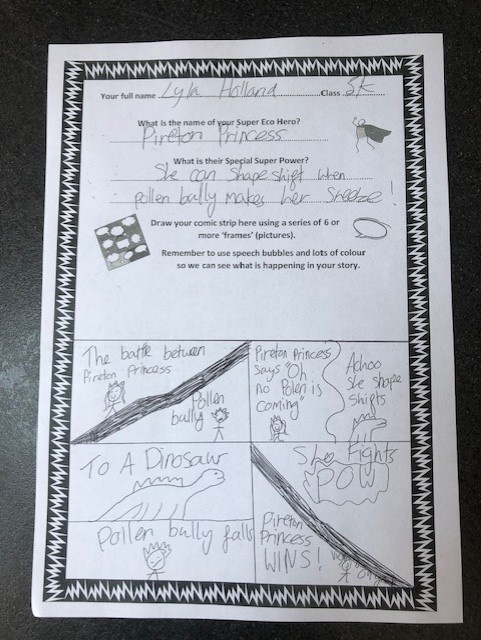 Your full name Lyla Holland Class 5K
What is the name of your Super Eco Hero?
Pireton Princess
What is their Special Super Power?
She can shape shift when
pollen bully makes her sneeze!
Draw your comic strip here using a series of 6 or
more 'frames' (pictures).
Remember to use speech bubbles and lots of colour
so we can see what is happening in your story.
The battle between
Pireton Princess
Pollen
bully
Pireton Princess
says "Oh
no Polen is
coming"
Achoo
She shape
shifts
To A Dinosaur
Pollen bully falls
She Fights
POW
Pireton
Princess
WINS!